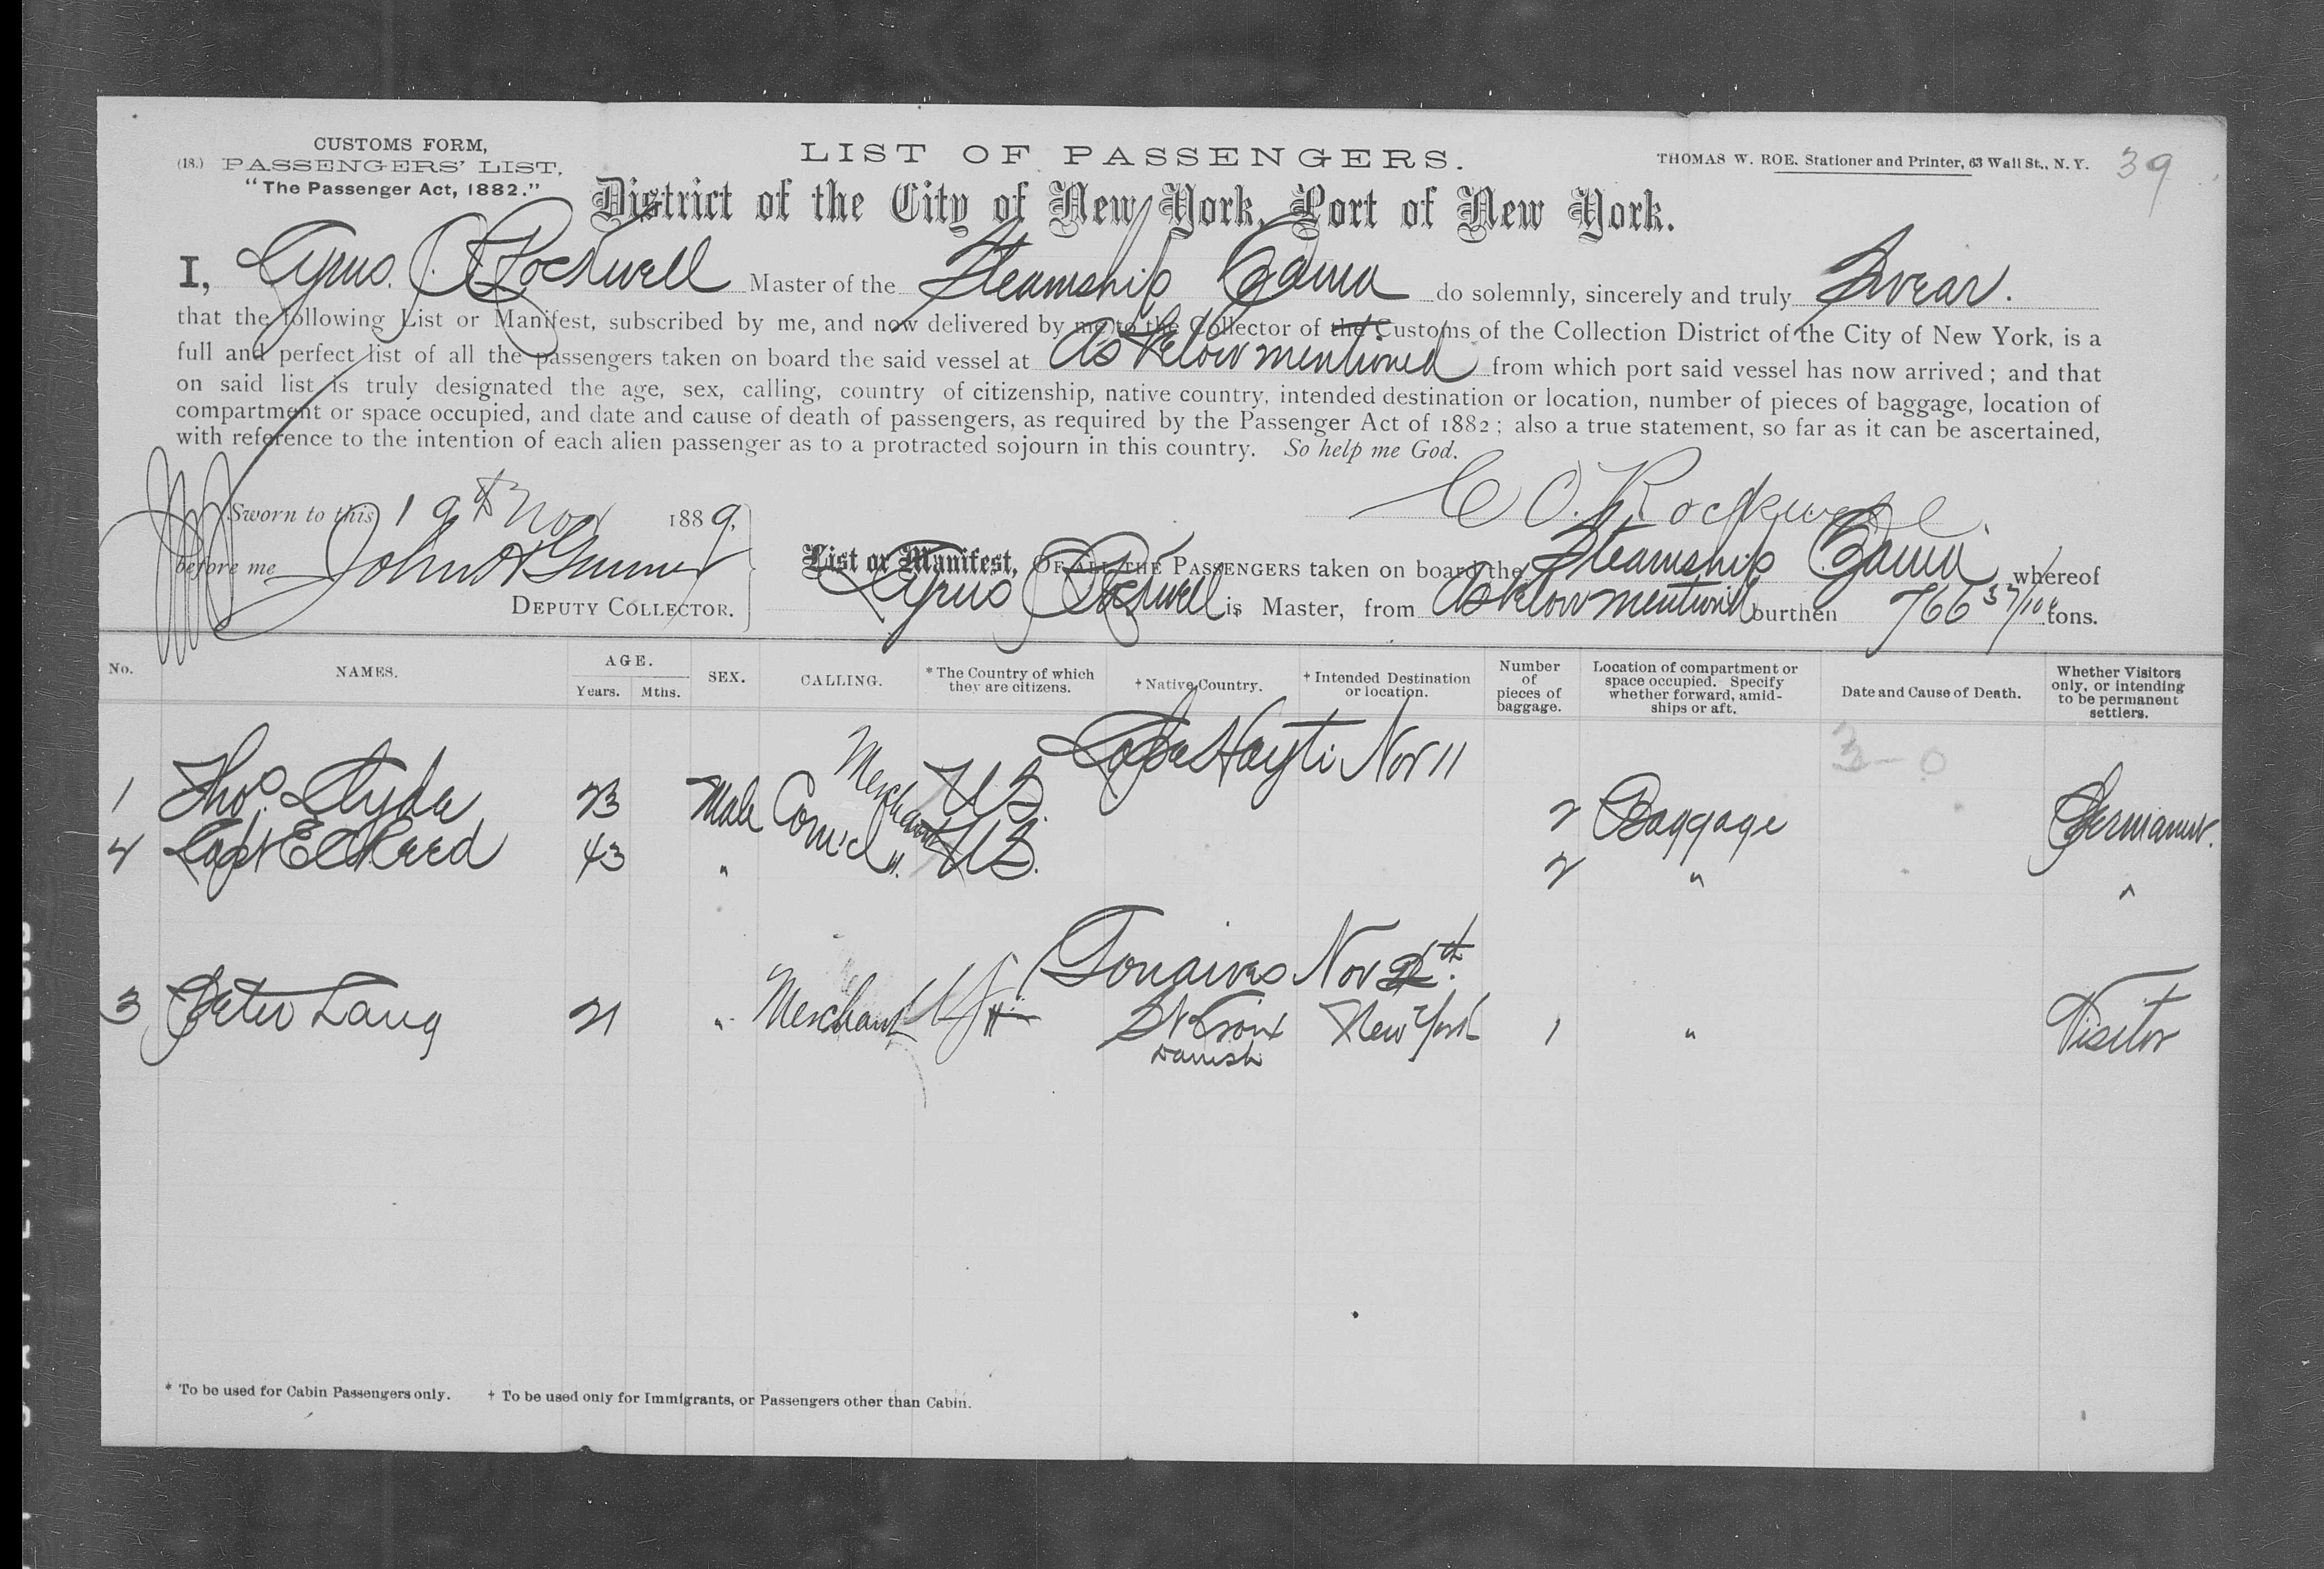 CUSTOMS FORM,
(18.) PASSENGERS' LIST,
"The Passenger Act, 1882."
LIST OF PASSENGERS.
THOMAS W. ROE, Stationer and Printer, 63 Wall St., N. Y.
39
District of the City of New York, Port of New York.
I, Cyrus. O. Rockwell Master of the Steamship Ozama do solemnly, sincerely and truly Swear.
that the following List or Manifest, subscribed by me, and now delivered by me to the Collector of the Customs of the Collection District of the City of New York, is a
full and perfect list of all the passengers taken on board the said vessel at As below mentioned from which port said vessel has now arrived; and that
on said list is truly designated the age, sex, calling, country of citizenship, native country, intended destination or location, number of pieces of baggage, location of
compartment or space occupied, and date and cause of death of passengers, as required by the Passenger Act of 1882; also a true statement, so far as it can be ascertained,
with reference to the intention of each alien passenger as to a protracted sojourn in this country. So help me God.
C O. Rockwell.
Sworn to this 19th Nov 1889,
before me John
DEPUTY COLLECTOR.
List or Manifest, OF ALL THE PASSENGERS taken on board the Steamship Ozama whereof
Cyrus O Rockwell is Master, from As below mentioned burthen 766 37/100 tons.
No. NAMES. AGE. Years. Mths. SEX. CALLING. * The Country of which they are citizens. † Native Country. † Intended Destination or location. Number of pieces of baggage. Location of compartment or space occupied. Specify whether forward, amidships or aft. Date and Cause of Death. Whether Visitors only, or intending to be permanent settlers.
Cape Hayti Nov 11
3-0
1 Thos. Clyde 23 Male Comcl Merchant U S. 2 Baggage Permanent.
2 Capt E C Reed 43 " " U S. 2 " "
Gonaives Nov
3 Peter Lang 21 " Merchant St Croix Danish New York 1 " Visitor
* To be used for Cabin Passengers only. † To be used only for Immigrants, or Passengers other than Cabin.